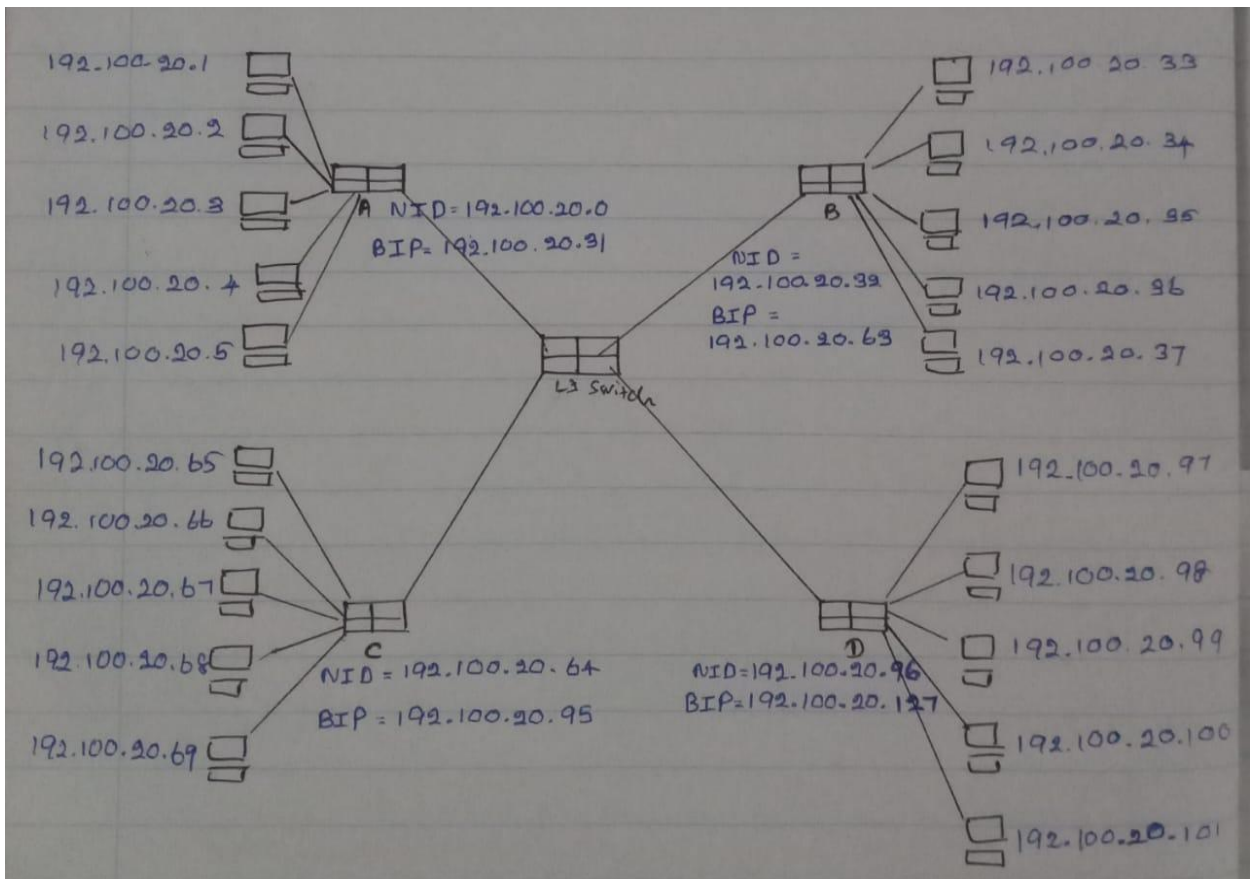 192.100.20.1
192.100.20.2
192.100.20.3
192.100.20.4
192.100.20.5
A
NID=192.100.20.0
BIP=192.100.20.31
192.100 20.33
192.100.20.34
192.100.20.35
192.100.20.36
192.100.20.37
B
NID =
192.100.20.32
BIP =
192.100.20.63
L3 Switch
192.100.20.65
192.100.20.66
192.100.20.67
192.100.20.68
192.100.20.69
C
NID = 192.100.20.64
BIP = 192.100.20.95
192.100.20.97
192.100.20.98
192.100.20.99
192.100.20.100
192.100.20.101
D
NID=192.100.20.96
BIP=192.100.20.127